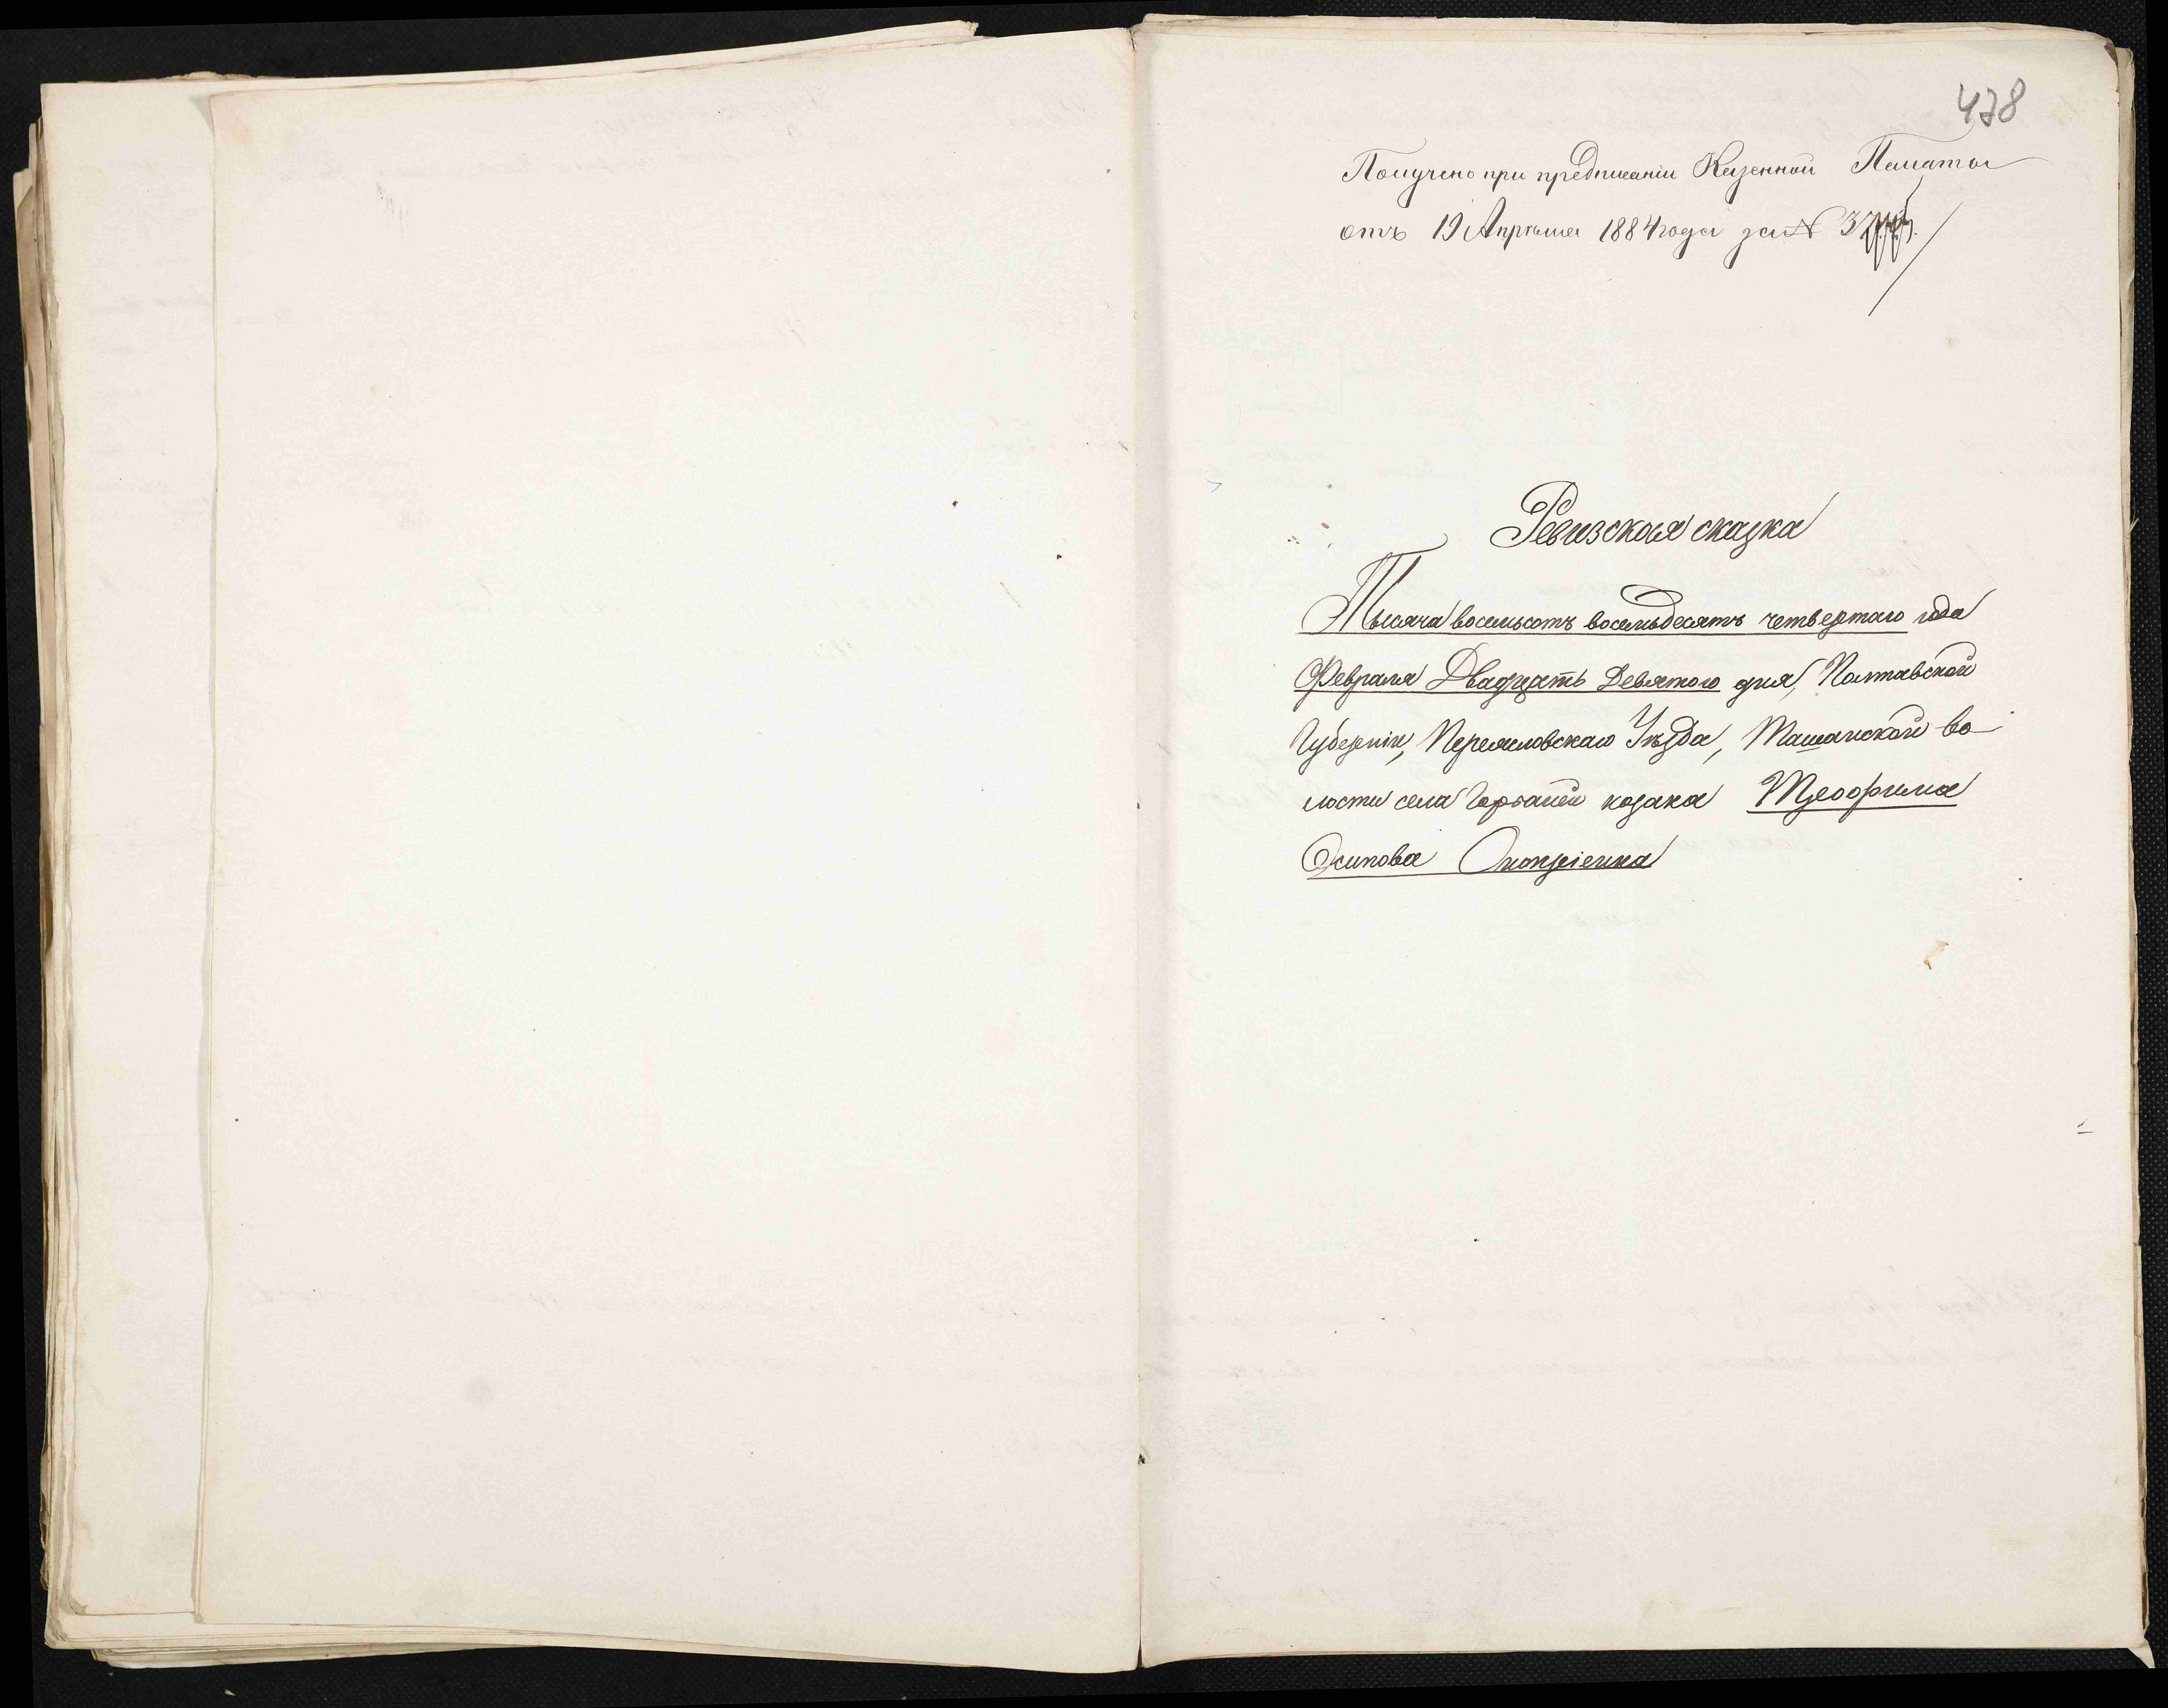 478
Получено при предписаніи Казенной Палаты
отъ 19 Апрѣля 1884 года за №
Ревизская сказка
Тысяча восемьсотъ восемьдесятъ четвертаго года
Февраля Двадцать Девятого дня, Полтавской
Губерніи, Переяловскаго Уѣзда, Ташанской во
лости села козака Трофима
Осипова